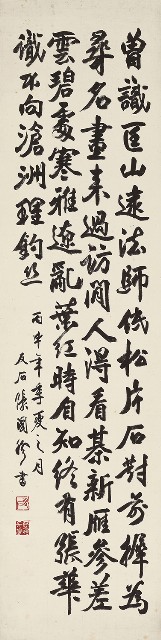 曾識匡山遠法師低松片石對前墀為
尋名畫来過訪閒人得看棊新雁參差
雲碧處寒雅遼亂葉紅時自知終有張華
識不向滄洲理釣絲
丙午年季夏之月
友石 國珍書